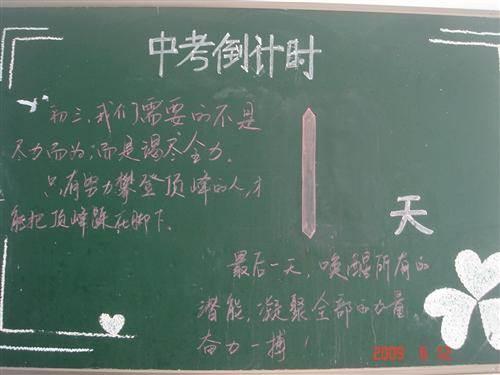 中考倒计时
初三,我们需要的不是
尽力而为,而是竭尽全力。
只有努力攀登顶峰的人,才
能把顶峰踩在脚下。
1
天
最后一天,唤醒所有的
潜能,凝聚全部的力量
奋力一搏!
2009 6 12